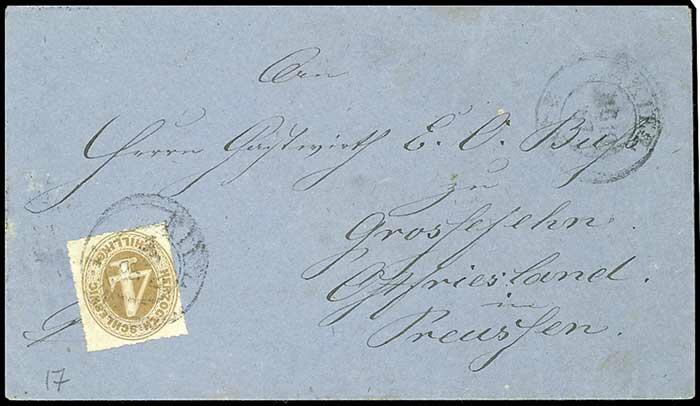 An
Herrn Gastwirth E. O.
zu
Grossefehn.
Ostfriesland.
in
Preussen.
4
HERZOGTH. SCHLESWIG
SCHILLINGE
KIEL
17